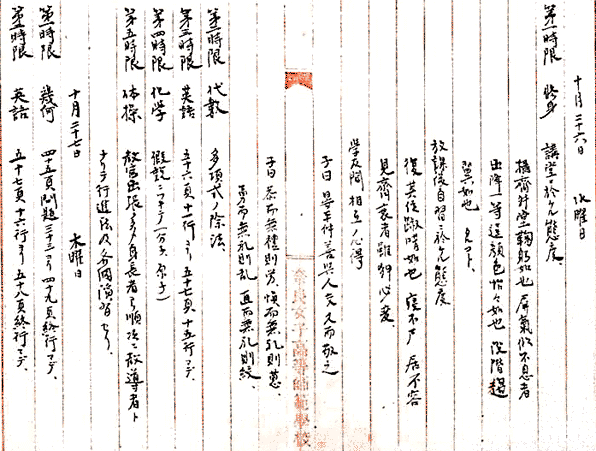 十月二十六日　水曜日
第一時限　修身　講堂ニ於ケル態度
攝齊升堂鞠躬如也屏氣似不息者
出降一等逞顔色怡々如也没階趨
翼如也
放課後自習ニ於ケル態度
寝不尸　居不容
見齊衰者雖狎必変
学友間相互ノ心得
子曰晏平仲善與人交久而敬之
子曰恭而無禮則労慎而無礼則葸
勇而無礼則乱　直而無礼則絞
奈良女子高等師範學校
第二時限　代数　多項式ノ除法
第三時限　英語　五十六頁十一行ヨリ五十七頁十五行マデ
第四時限　化学　假説ニツキテ(分子、原子)
第五時限　体操　教官出張ノ多メ身長者ヨリ順次ニ教導者ト
ナリテ行進法及各個演習セリ
十月二十七日　木曜日
第一時限　幾何　四十五頁問題三十三ヨリ四十九頁終行マデ
第二時限　英語　五十七頁十六行ヨリ五十八頁終行マデ